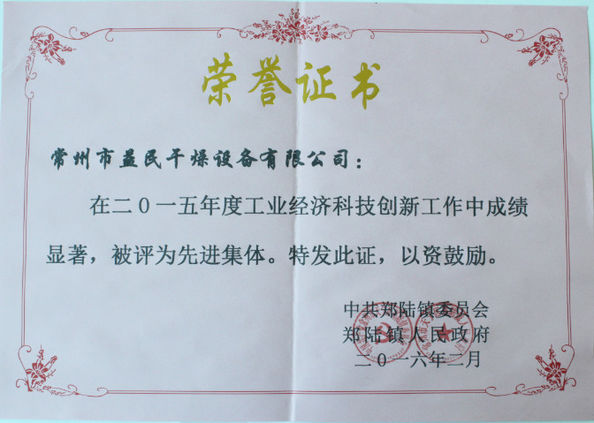 荣誉证书
常州市益民干燥设备有限公司：
在二0一五年度工业经济科技创新工作中成绩
显著，被评为先进集体。特发此证，以资鼓励。
中共郑陆镇委员会
郑陆镇人民政府
二0一六年二月